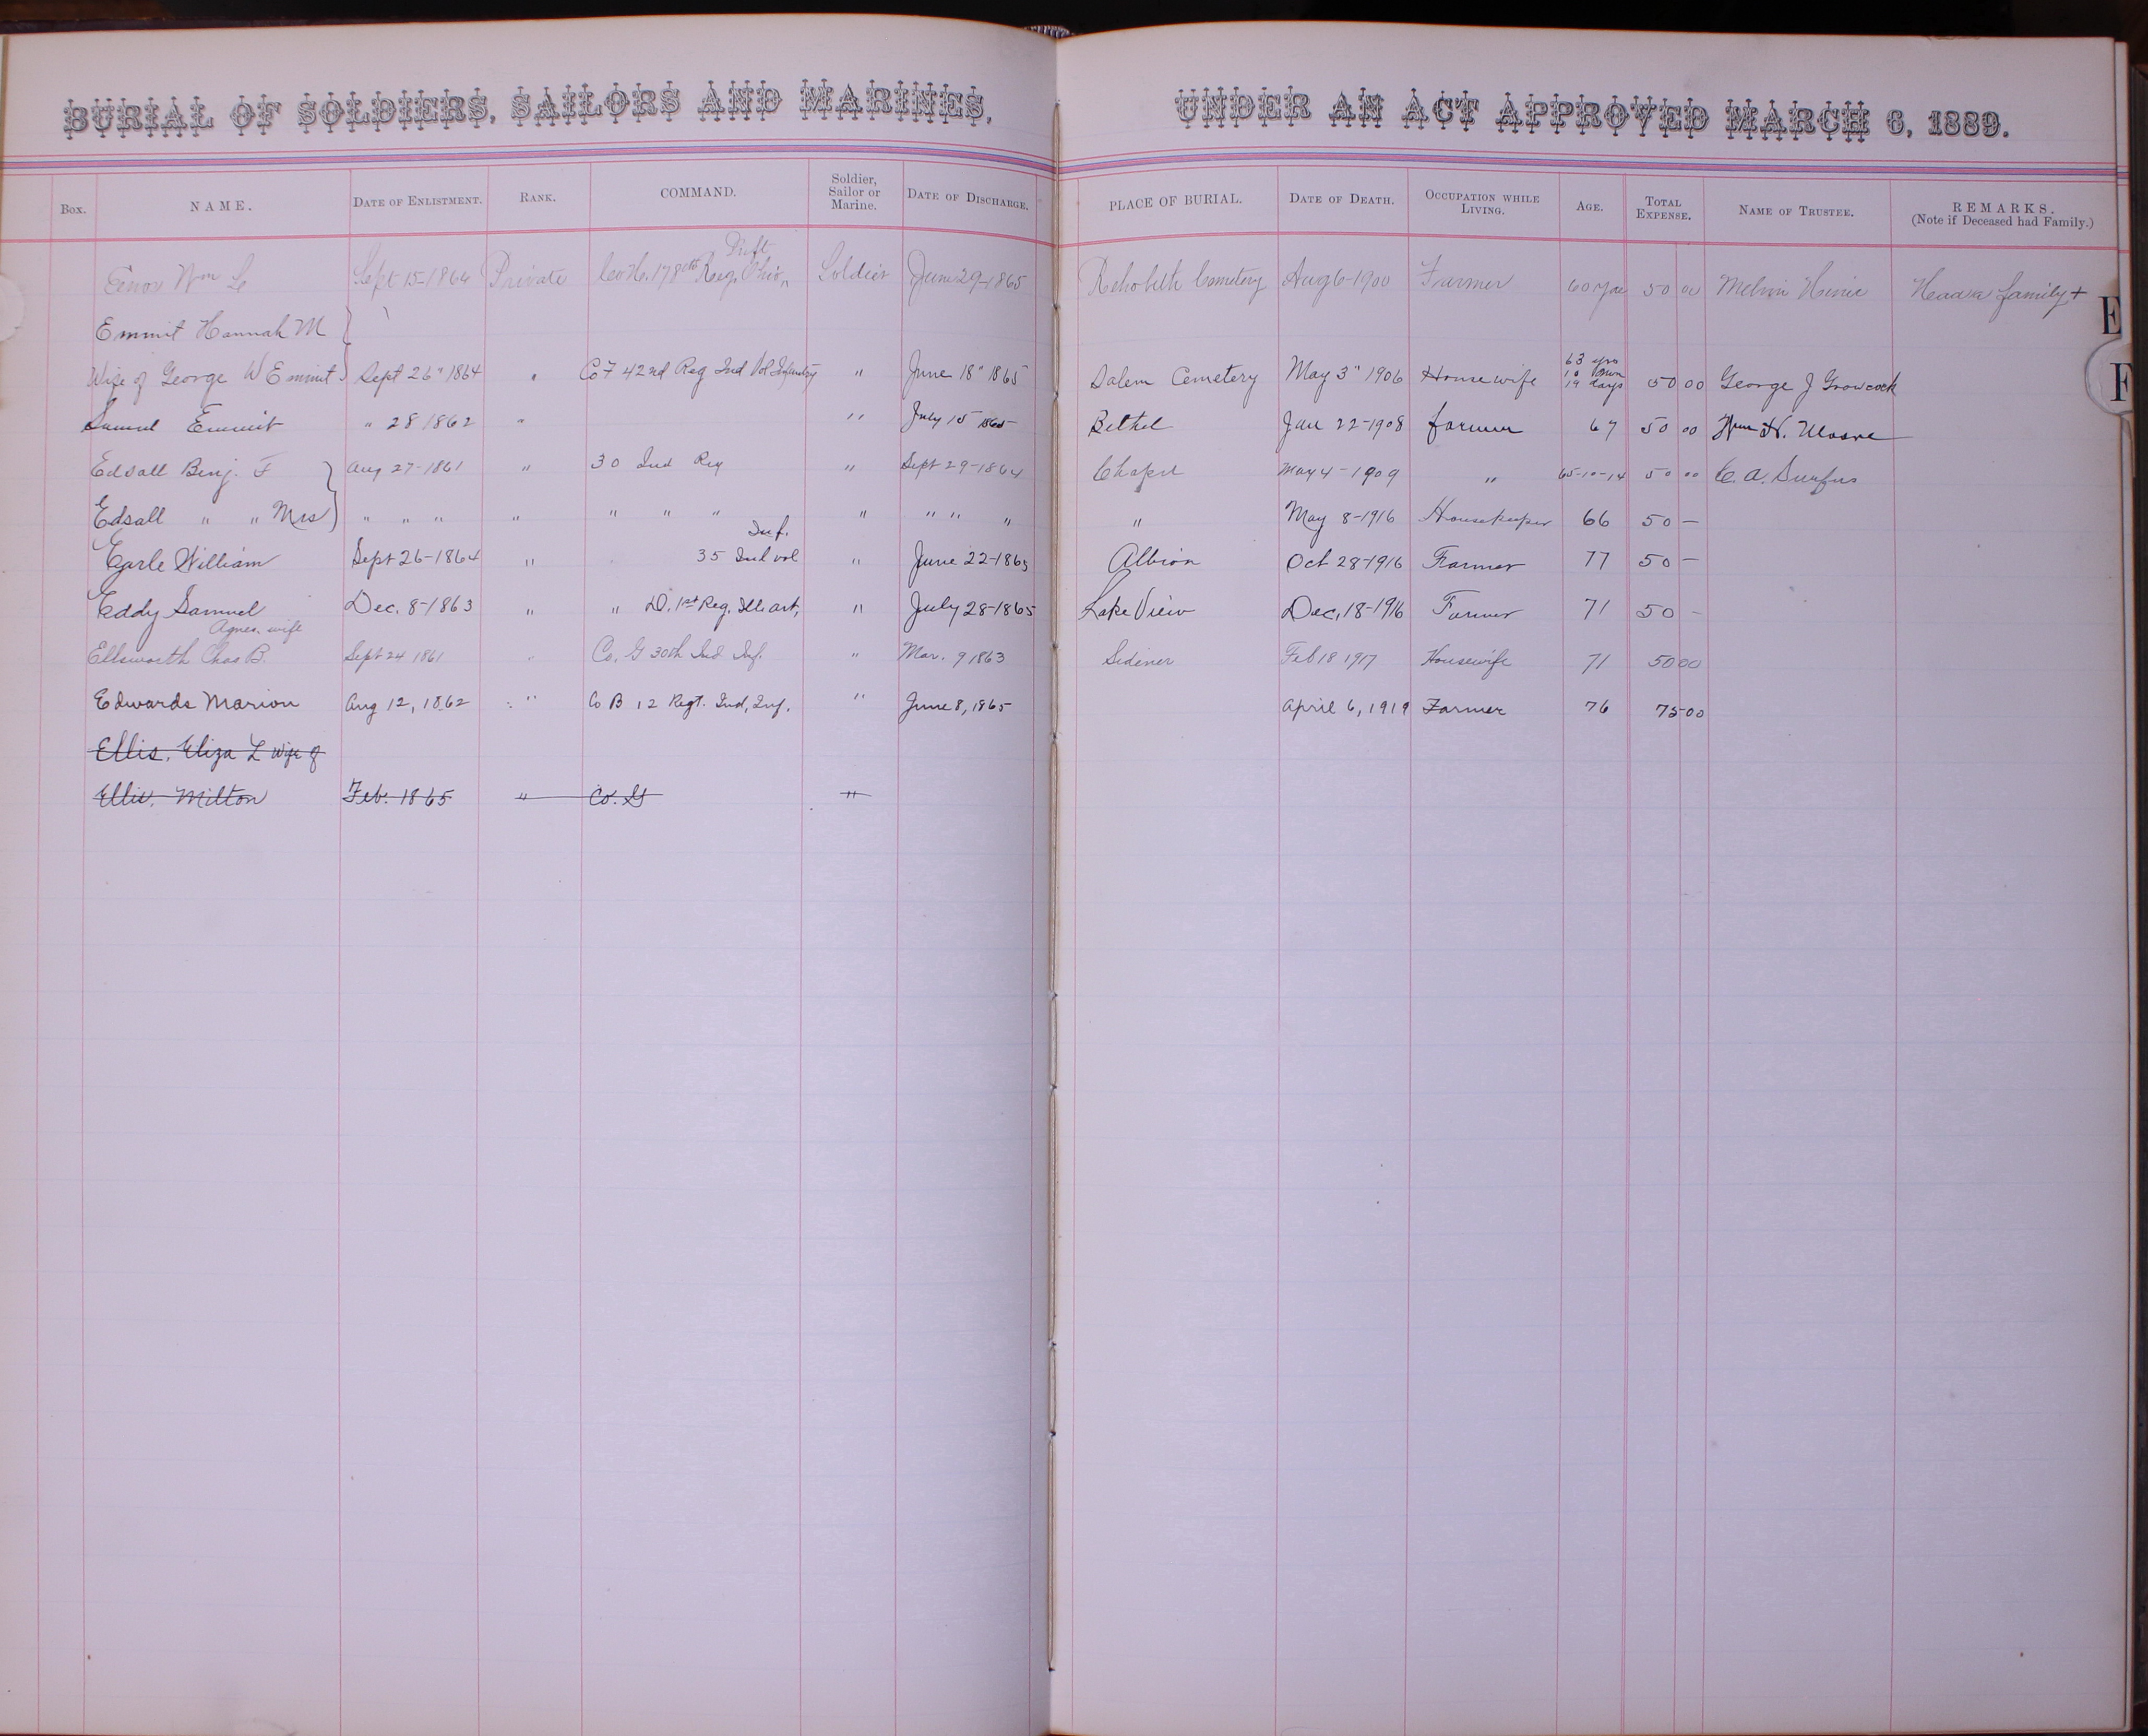 BURIAL OF SOLDIERS, SAILORS AND MARINES, UNDER AN ACT APPROVED MARCH 6, 1889.
Box. NAME. DATE OF ENLISTMENT. RANK. COMMAND. Soldier, Sailor or Marine. DATE OF DISCHARGE. PLACE OF BURIAL. DATE OF DEATH. OCCUPATION WHILE LIVING. AGE. TOTAL EXPENSE. NAME OF TRUSTEE. REMARKS. (Note if Deceased had Family.)
Wm Sept 15-1864 Private Co H. 178th Reg. Ohio Soldier June 29-1865 Cemetery Aug 6-1900 Farmer 60 50 00 Melvin Had a family +
Emmit Hannah M
Wife of George W Emmit Sept 26" 1864 " Co F 42nd Reg Ind Vol Infantry " June 18" 1865 Salem Cemetery May 3" 1906 Housewife 63 yrs 10 19 days 50 00 George J Growcock
Samuel Emmit " 28 1862 " " July 15 1865 Bethel Jan 22-1908 farmer 67 50 00 Wm H.
Edsall Benj. F Aug 27-1861 " 30 Ind Reg " Sept 29-1864 Chapel May 4-1909 " 65-10-14 50 00 C. A.
Edsall " " Mrs " " " " " " " " " " " " May 8-1916 Housekeeper 66 50 —
Earle William Sept 26-1864 " 35 Ind vol Inf. " June 22-1865 Albion Oct 28-1916 Farmer 77 50 —
Eddy Samuel Dec. 8-1863 " " D. 1st Reg. Ills art, " July 28-1865 Lake View Dec, 18-1916 Farmer 71 50 -
Agnes. wife
Ellsworth Chas B. Sept 24 1861 " Co. G 30th Ind Inf. " Mar. 9 1863 Feb 18 1917 Housewife 71 50 00
Edwards Marion Aug 12, 1862 " Co B 12 Regt. Ind, Inf. " June 8, 1865 April 6, 1919 Farmer 76 75 00
Ellis, Eliza L wife of
Ellis, Milton Feb. 1865 " Co. G "
E
F